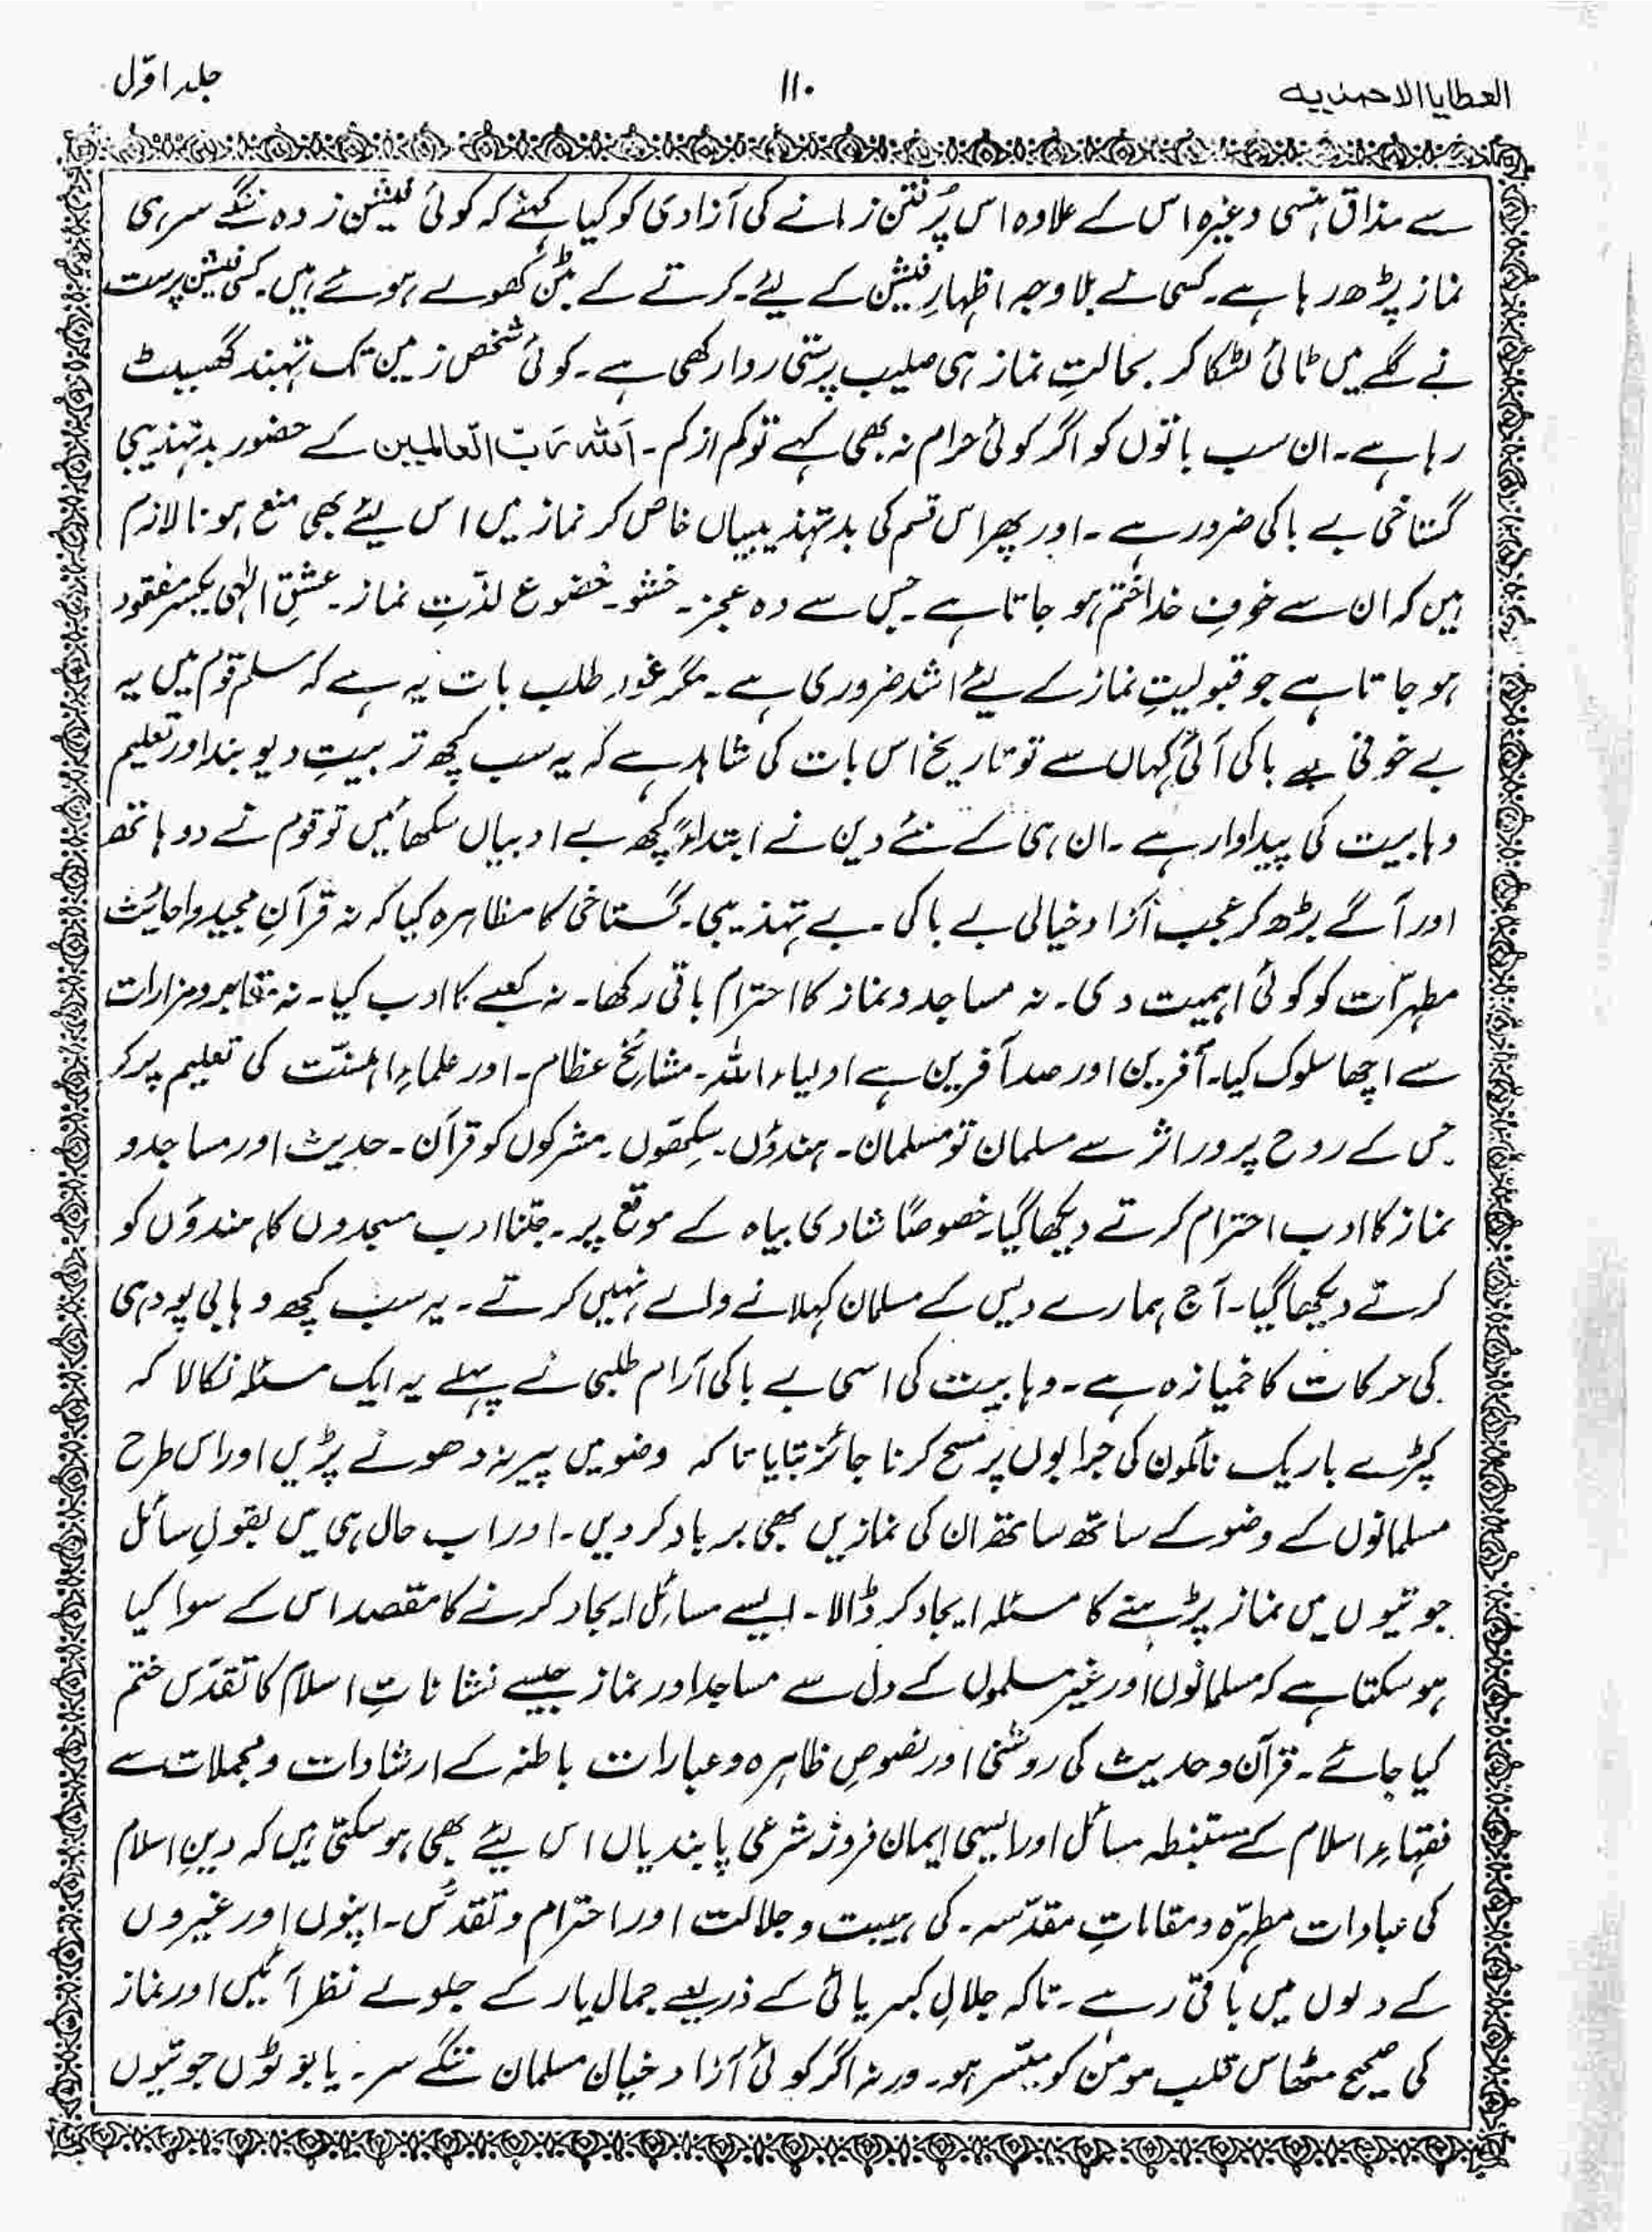 العطایا الاحمدیہ ۱۱۰ جلد اوّل
سے مذاق ہنسی وغیرہ اس کے علاوہ اس پُرفتن زمانے کی آزادی کو کیا کہئے کہ کوئی فیشن زدہ ننگے سر ہی
نماز پڑھ رہا ہے۔ کسی نے بلاوجہ اظہارِ فیشن کے لیئے۔ کرتے کے بٹن کھولے ہوئے ہیں۔ کسی فیشن پرست
نے گلے میں ٹائی لٹکا کر بحالتِ نماز ہی صلیب پرستی روا رکھی ہے۔ کوئی شخص زمین تک تہبند گھسیٹ
رہا ہے۔ ان سب باتوں کو اگر کوئی حرام نہ بھی کہے تو کم از کم۔ اَللّٰہ رَبّ الْعالمین کے حضور بدتہذیبی
گستاخی بے باکی ضرور ہے۔ اور پھر اس قسم کی بدتہذیبیاں خاص کر نماز میں اس لیئے بھی منع ہونا لازم
ہیں کہ ان سے خوفِ خدا ختم ہو جاتا ہے۔ جس سے وہ عجز۔ خشو۔ خضوع لذّتِ نماز۔ عشقِ الٰہی یکسر مفقود
ہو جاتا ہے جو قبولیتِ نماز کے لیئے اشد ضروری ہے۔ مگر غور طلب بات یہ ہے کہ مسلم قوم میں یہ
بے خوفی بے باکی آئی کہاں سے تو تاریخ اس بات کی شاہد ہے کہ یہ سب کچھ تربیتِ دیوبند اور تعلیم
وہابیت کی پیداوار ہے۔ ان ہی کے نئے دین نے ابتداءً کچھ بے ادبیاں سکھائیں تو قوم نے دو ہاتھ
اور آگے بڑھ کر عجب آزاد خیالی بے باکی۔ بے تہذیبی۔ گستاخی کا مظاہرہ کیا کہ نہ قرآنِ مجید و احادیث
مطہرّات کو کوئی اہمیت دی۔ نہ مساجد و نماز کا احترام باقی رکھا۔ نہ کعبے کا ادب کیا۔ نہ مقابر و مزارات
سے اچھا سلوک کیا۔ آفرین اور صد آفرین ہے اولیاء اللہ۔ مشائخِ عظام۔ اور علماءِ اہلسنّت کی تعلیم پر کر
جس کے روح پرور اثر سے مسلمان تو مسلمان۔ ہندوؤں۔ سِکھّوں۔ مشرکوں کو قرآن۔ حدیث اور مساجد و
نماز کا ادب احترام کرتے دیکھا گیا۔ خصوصًا شادی بیاہ کے موقع پر۔ جتنا ادب مسجدوں کا ہندوؤں کو
کرتے دیکھا گیا۔ آج ہمارے دیس کے مسلمان کہلانے والے نہیں کرتے۔ یہ سب کچھ وہابی پود ہی
کی حرکات کا خمیازہ ہے۔ وہابیت کی اسی بے باکی آرام طلبی نے پہلے یہ ایک مسئلہ نکالا کہ
کپڑے باریک نائلون کی جرابوں پر مسح کرنا جائز بتایا تاکہ وضو میں پیر نہ دھونے پڑیں اور اس طرح
مسلمانوں کے وضو کے ساتھ ساتھ ان کی نمازیں بھی برباد کر دیں۔ اور اب حال ہی میں بقولِ سائل
جوتیوں میں نماز پڑہنے کا مسئلہ ایجاد کر ڈالا۔ ایسے مسائل ایجاد کرنے کا مقصد اس کے سوا کیا
ہو سکتا ہے کہ مسلمانوں اور غیر مسلموں کے دل سے مساجد اور نماز جیسے نشاناتِ اسلام کا تقدّس ختم
کیا جائے۔ قرآن و حدیث کی روشنی اور نصوصِ ظاہرہ و عبارات باطنہ کے ارشادات و مجملات سے
فقہاءِ اسلام کے مستنبطہ مسائل اور ایسی ایمان فروز شرعی پابندیاں اس لیئے بھی ہو سکتی ہیں کہ دینِ اسلام
کی عبادات مطہرّہ و مقاماتِ مقدّسہ۔ کی ہیبت و جلالت اور احترام و تقدّس۔ اپنوں اور غیروں
کے دلوں میں باقی رہے۔ تاکہ جلالِ کبریائی کے ذریعے جمال یار کے جلوے نظر آئیں اور نماز
کی صحیح مٹھاس قلب مومن کو میسّر ہو۔ ورنہ اگر کوئی آزاد خیال مسلمان ننگے سر۔ یا بوٹوں جوتیوں